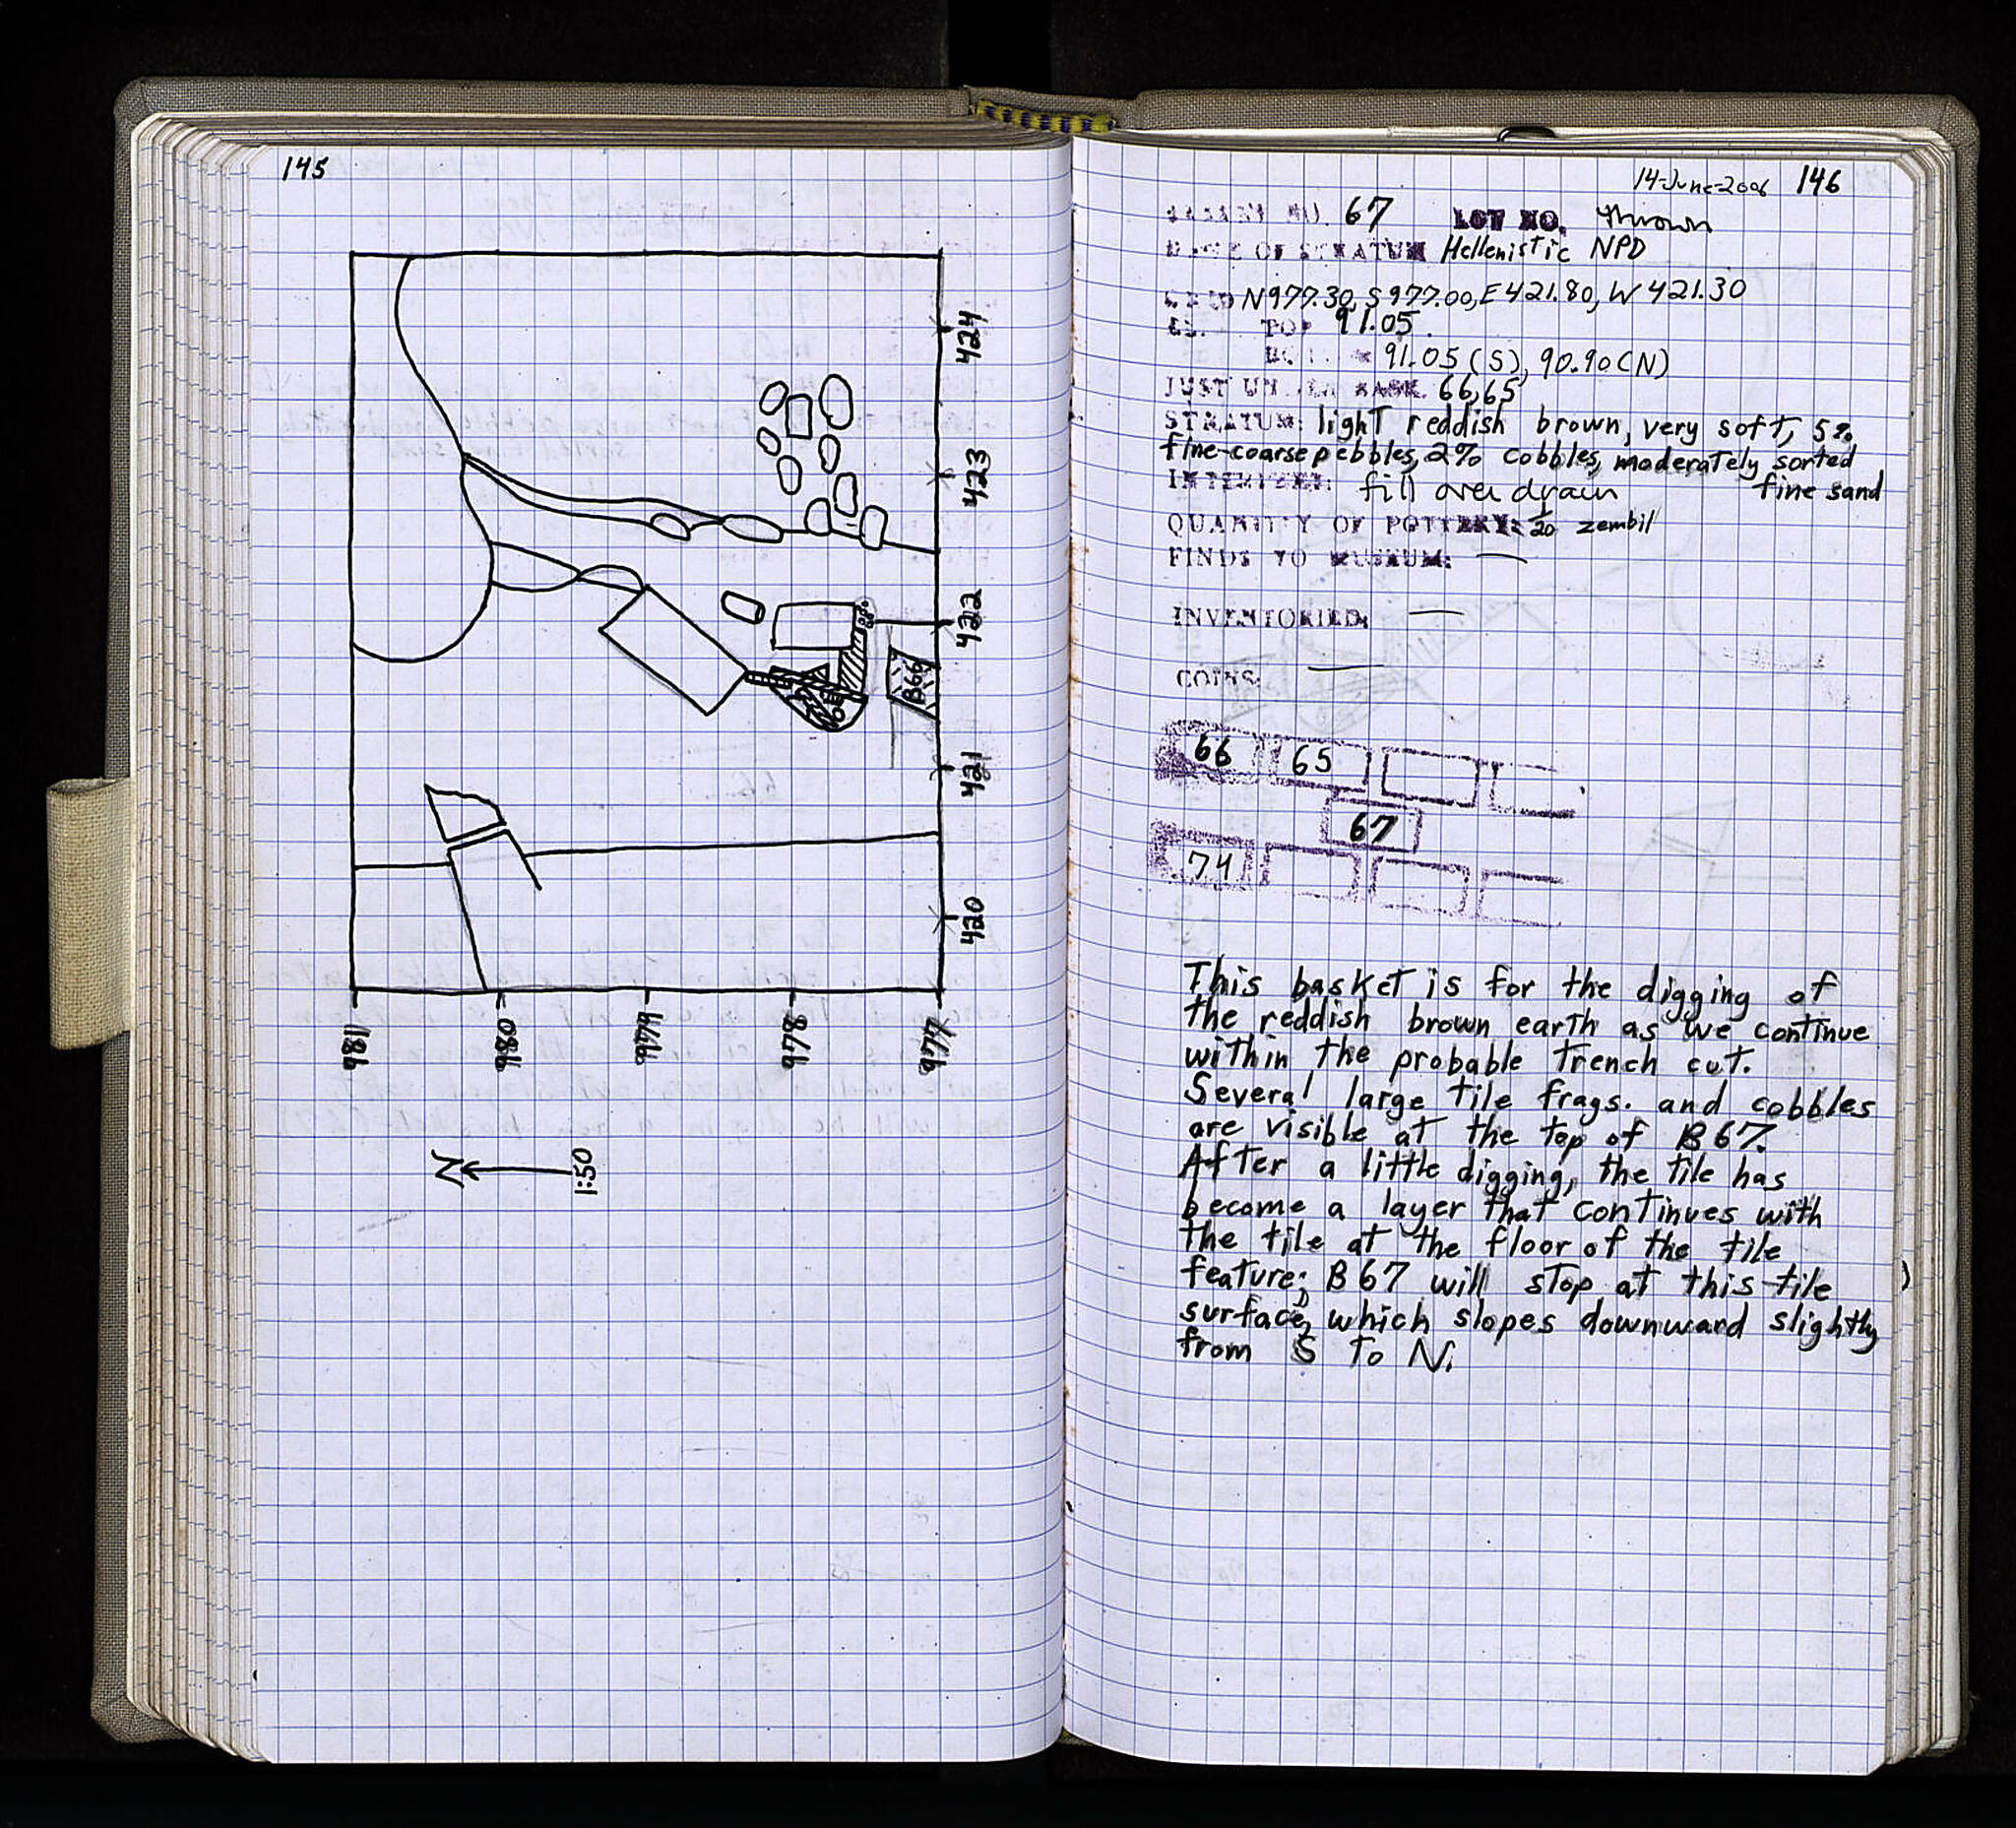 145
424
423
422
B66
421
420
981
980
979
978
977
N
1:50
14-June-2006 146
BASKET NO. 67 LOT NO. thrown
DATE OF STRATUM Hellenistic NPD
GRID N977.30, S977.00, E421.80, W421.30
EL. TOP 91.05
91.05 (S), 90.90 (N)
JUST UNDER BASK. 66,65
STRATUM: light reddish brown, very soft, 5%
fine-coarse pebbles, 2% cobbles, moderately sorted
fine sand
fill over drain
QUANTITY OF POTTERY: 1/20 zembil
FINDS TO MUSEUM: —
INVENTORIED: —
COINS: —
66 65
67
74
This basket is for the digging of
the reddish brown earth as we continue
within the probable trench cut.
Several large tile frags. and cobbles
are visible at the top of B67.
After a little digging, the tile has
become a layer that continues with
the tile at the floor of the tile
feature; B67 will stop at this tile
surface, which slopes downward slightly
from S to N.